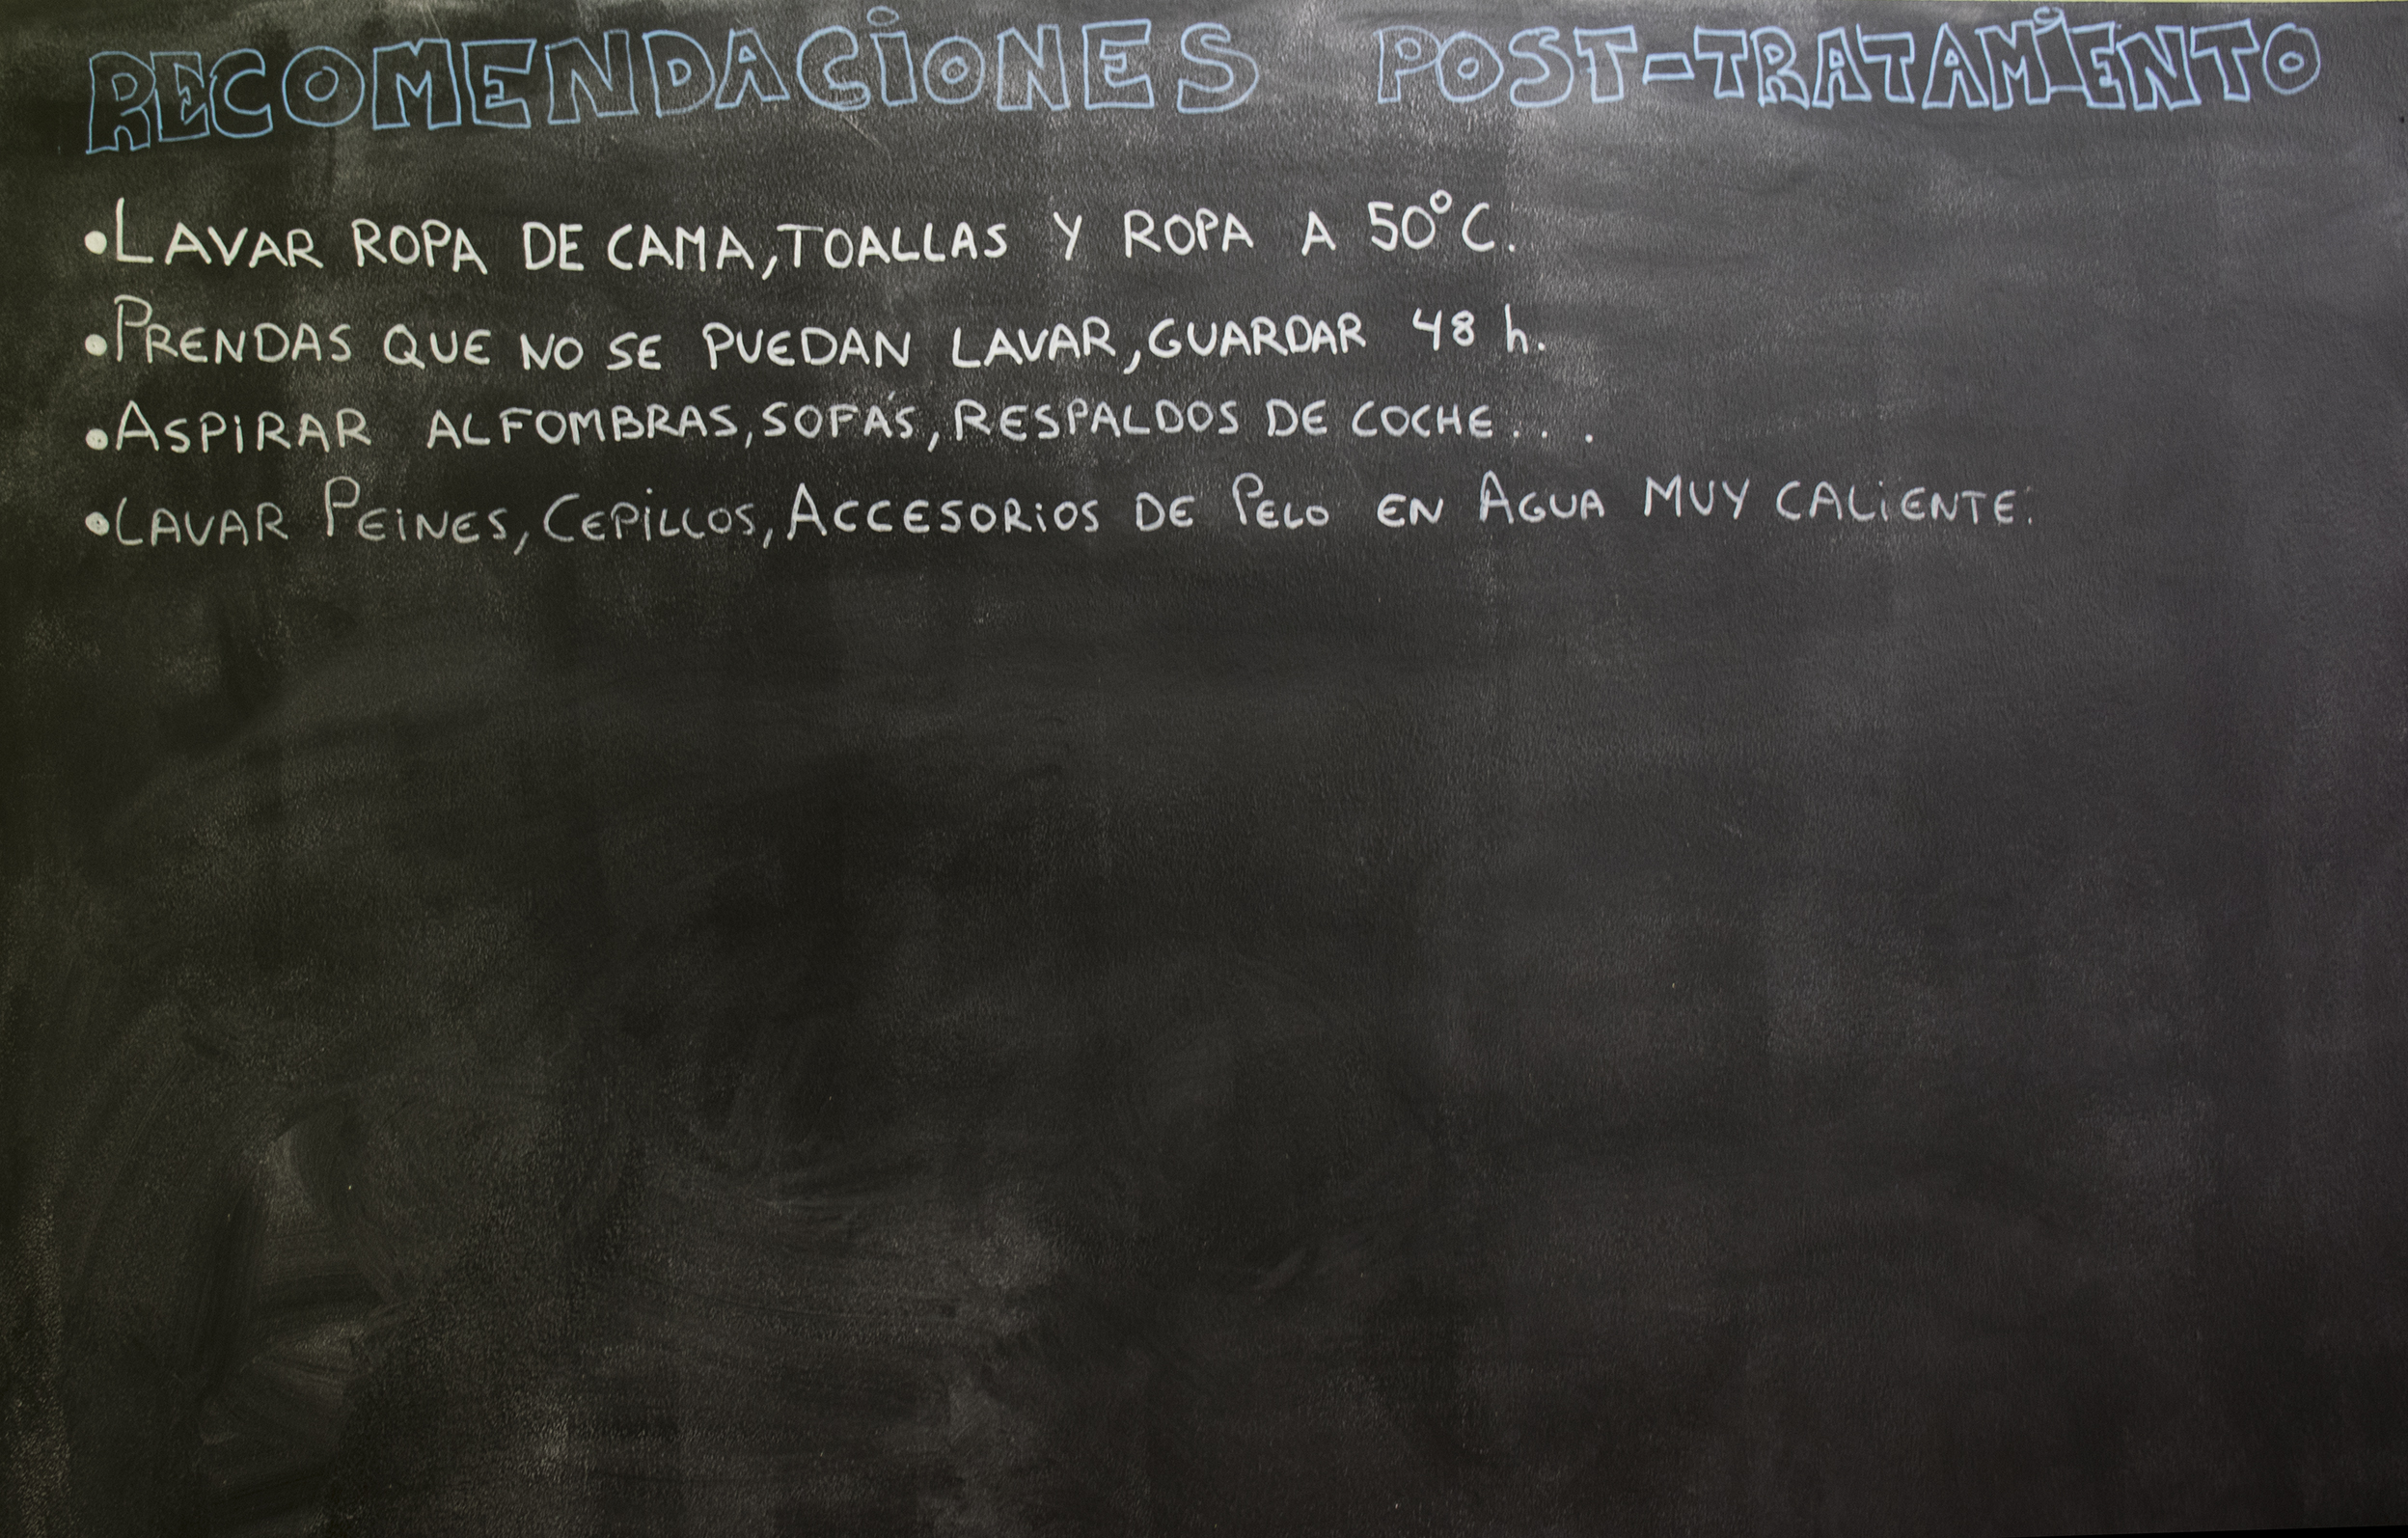 RECOMENDACIONES POST-TRATAMIENTO
•LAVAR ROPA DE CAMA, TOALLAS Y ROPA A 50°C.
•PRENDAS QUE NO SE PUEDAN LAVAR, GUARDAR 48 h.
•ASPIRAR ALFOMBRAS, SOFÁS, RESPALDOS DE COCHE...
•LAVAR PEINES, CEPILLOS, ACCESORIOS DE PELO EN AGUA MUY CALIENTE.